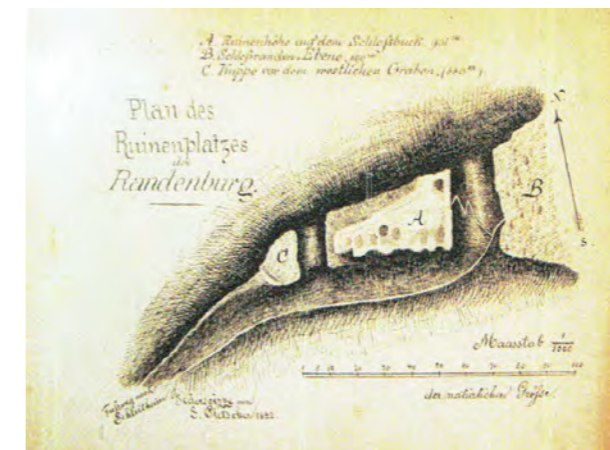 A. Ruinenhöhe auf dem Schloßbuck
B. Schloßranden-Ebene
C. Kuppe vor dem westlichen Graben.
Plan des
Ruinenplatzes
der
Randenburg.
N.
B
A
C
S.
Maasstab 1/1000
der natürlichen Größe.
Fußweg nach
Schleitheim